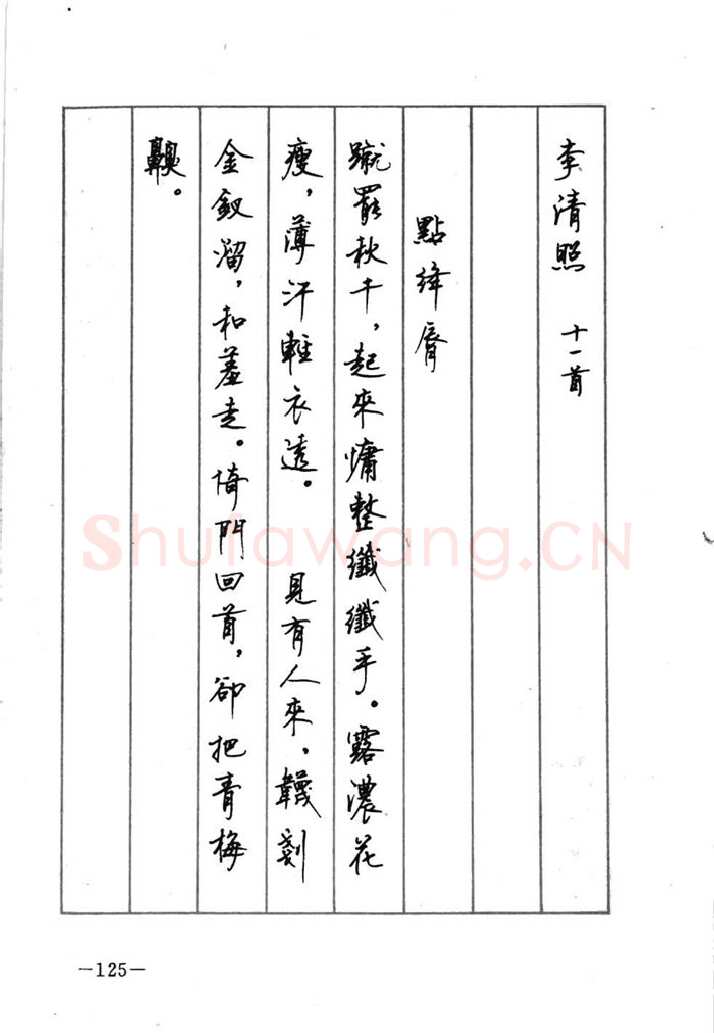 李清照 十一首
點絳脣
蹴罷秋千,起來慵整纖纖手。露濃花
瘦,薄汗輕衣透。 見有人來,韤剗
金釵溜,和羞走。倚門回首,卻把青梅
齅。
Shufawang.CN
—125—